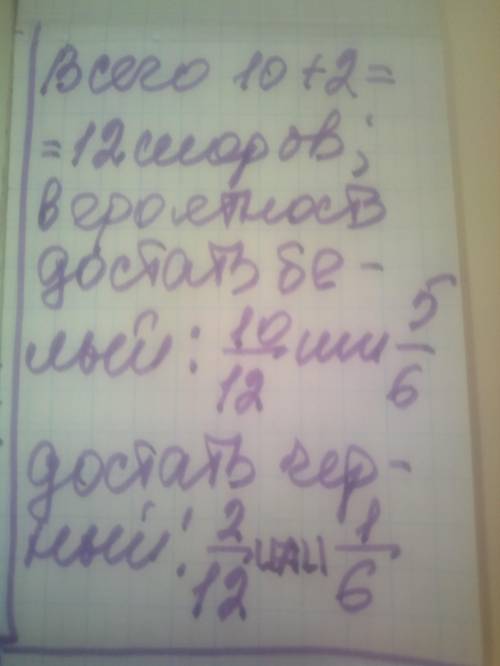 Всего 10+2=
=12 шаров;
вероятность
достать бе-
лый: 10/12 или 5/6
достать чер-
ный: 2/12 или 1/6